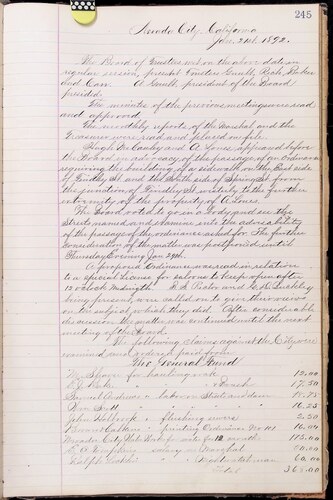 245
Nevada City, California
Jan. 21st 1892.
The Board of Trustees met on the above date in
regular session, present Trustees Gault, Rich, Baker
and Carr. A. Gault, president of the Board
presided.
The minutes of the previous meeting were read
and approved.
The monthly reports of the Marshal and the
Treasurer were read and placed on file.
Hugh McCauley and A. Lones, appeared before
the Board in advocacy of the passage of an Ordinance
requiring the building of a sidewalk on the East side
of Findley St. and the South side of Spring St. from
the junction of Findley St. westerly to the further
extremity of the property of A. Lones.
The Board voted to go in a body and see the
Streets named and examine into the advisability
of the passage of the ordinance asked for. The further
consideration of the matter was postponed until
Thursday Evening Jan 28th.
A proposed Ordinance was read in relation
to a special License for saloons to keep open after
12 o'clock Midnight.
being present, were called on to give their views
on the subject, which they did. After considerable
discussion the matter was continued until the next
meeting of the Board.
The following claims against the City were
examined and ordered paid from
The General Fund
for hauling rock 12.00
17.50
Samuel Andrews " labor on Streets and dam
16.25
John 2.50
" printing Ordinance No 101
Nevada City for 12 months 115.00
salary as Marshal
" Night Watchman 60.00
Total